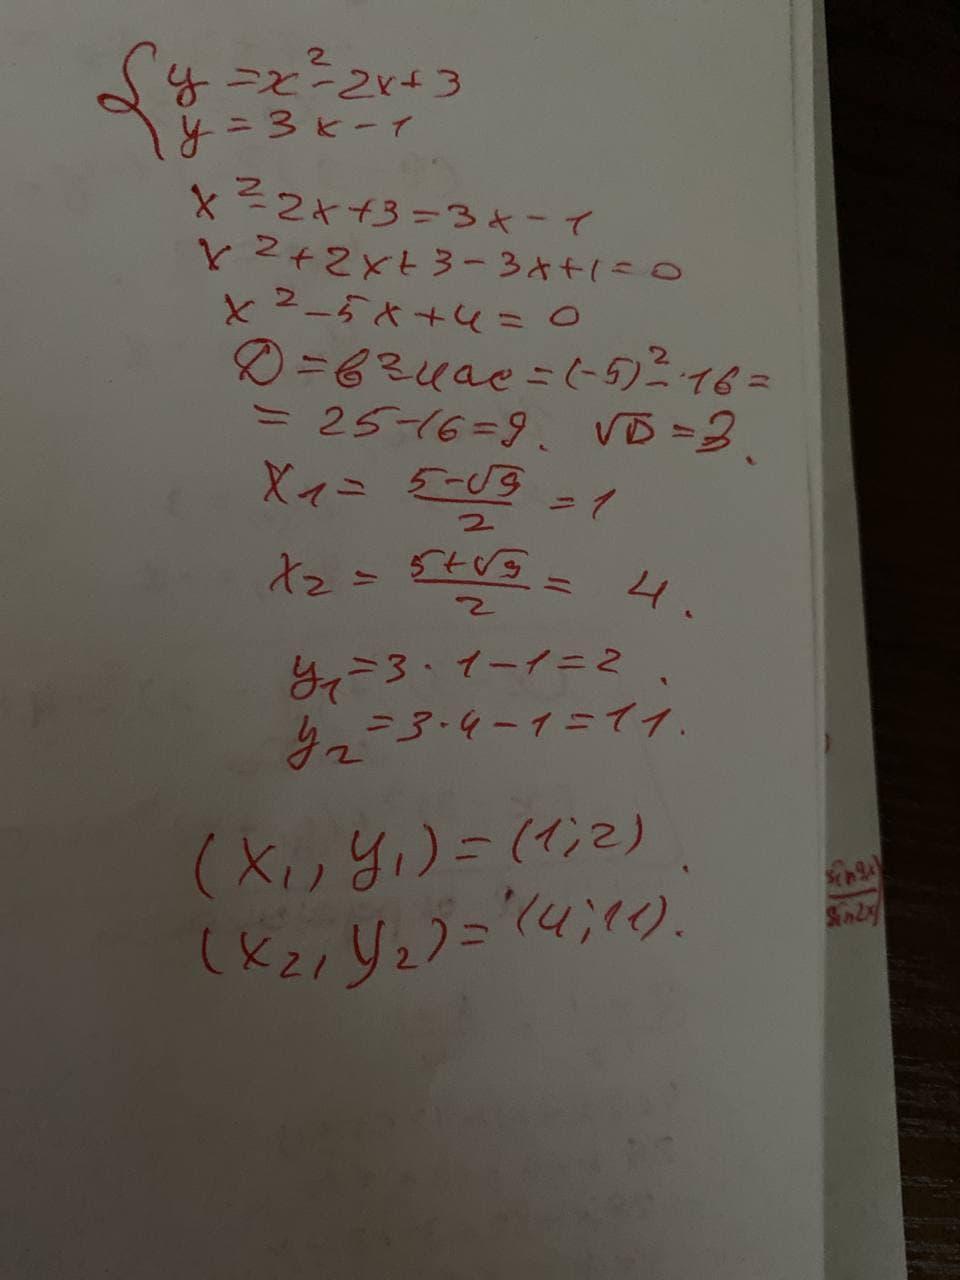 {y = x² - 2x + 3
y = 3x - 1
x² - 2x + 3 = 3x - 1
x² + 2x + 3 - 3x + 1 = 0
x² - 5x + 4 = 0
D = b² - 4ac = (-5)² - ·16 =
= 25 - 16 = 9. √D = 3.
x₁ = (5 - √9)/2 = 1
x₂ = (5 + √9)/2 = 4.
y₁ = 3 · 1 - 1 = 2.
y₂ = 3 · 4 - 1 = 11.
(x₁, y₁) = (1; 2).
(x₂, y₂) = (4; 11).
sin9x/sin2x